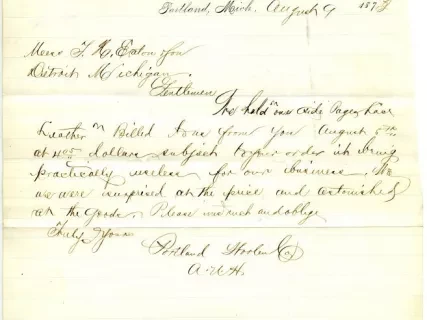 Portland, Mich. August 9 187
Mess T. H. Eaton & Son
Detroit Michigan.
Gentlemen
We hold one side
Leather Billed to us from you August 5th
at 4 dollars subject to your order it being
practically useless for our business. We
were surprised at the price and astonished
at the goods. Please and oblige
Truly Yours
Portland Woolen Co
A. U. H.